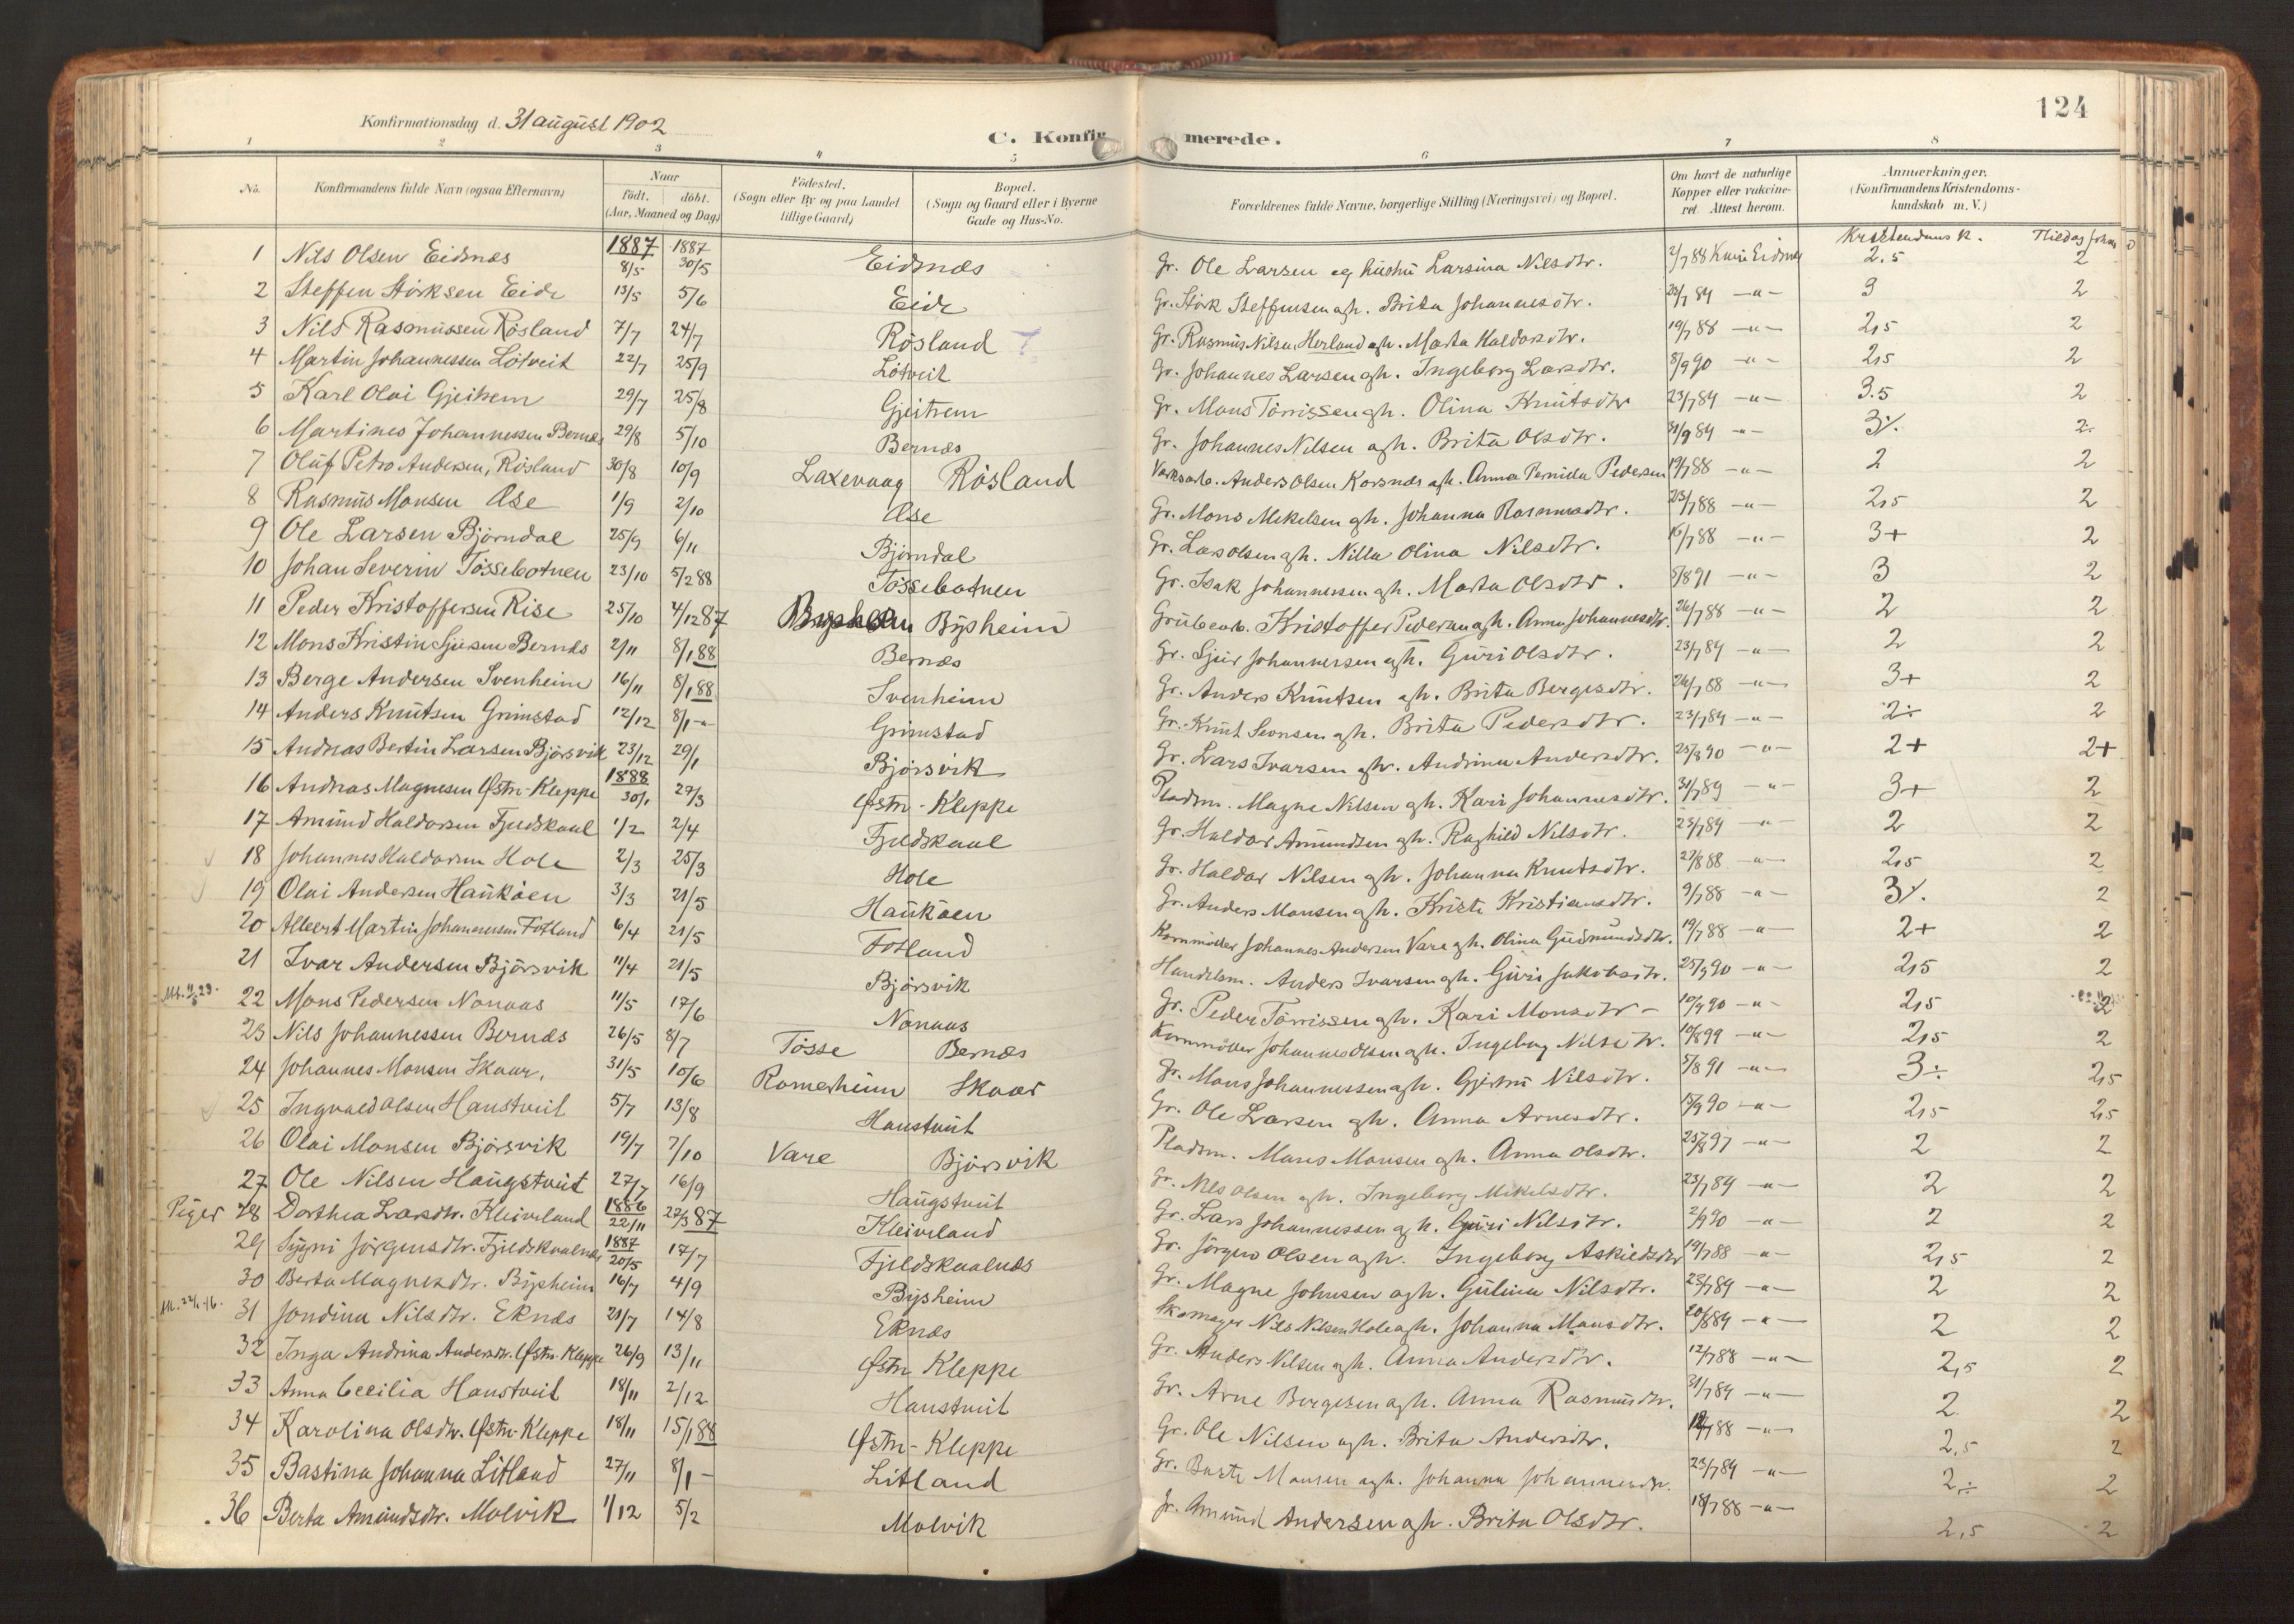 124
Konfirmationsdag d. 31 august 1902
C. Konfirmerede.
1 2 3 4 5 6 7 8
No. Konfirmandens fulde Navn (ogsaa Efternavn) Naar født. døbt. (Aar, Maaned og Dag) Fødested. (Sogn eller By og paa Landet tillige Gaard) Bopæl. (Sogn og Gaard eller i Byerne Gade og Hus-No. Forældrenes fulde Navne, borgerlige Stilling (Næringsvei) og Bopæl. Om havt de naturlige Kopper eller vakcineret. Attest herom. Anmærkninger. (Konfirmandens Kristendomskundskab m. V.)
Kristendoms k.
1 Nils Olsen Eidsnæs 1887 8/5 1887 30/5 Eidsnæs Gr. Ole Larsen og hustru Larsina Nilsdtr. 2/7 88 2,5 2
2 Steffen Størksen Eide 13/5 5/6 Eide Gr. Størk Steffensen ogh. Brita Johannesdtr. 23/7 89 -"- 3 2
3 Nils Rasmussen Røsland 7/7 24/7 Røsland Gr. Rasmus Nilsen Herland ogh. Marta Haldorsdtr. 19/7 88 -"- 2,5 2
4 Martin Johannessen Løtveit 22/7 25/9 Løtveit Gr. Johannes Larsen ogh. Ingeborg Larsdtr. 8/9 90 -"- 2,5 2
5 Karl Olai Gjeitrem 29/7 25/8 Gjeitrem Gr. Mons Tørrissen ogh. Olina Knutsdtr 23/7 89 -"- 3.5 2
6 Martines Johannessen Bernæs 29/8 5/10 Bernæs Gr. Johannes Nilsen ogh. Brita Olsdtr. 31/9 89 -"- 3÷ 2÷
7 Oluf Petro Andersen, Røsland 30/8 10/9 Laxevaag Røsland Værksarb. Anders Olsen Korsnæs ogh. Anna Pernilla Pedersen 19/7 88 -"- 2 2
8 Rasmus Monsen Åse 1/9 2/10 Åse Gr. Mons Mikelsen ogh. Johanna Rasmusdtr. 23/7 88 -"- 2,5 2
9 Ole Larsen Bjørndal 25/9 6/11 Bjørndal Gr. Lars Olsen ogh. Nilla Olina Nilsdtr. 16/7 88 -"- 3+ 2
10 Johan Severin Tøssebotnen 23/10 5/2 88 Tøssebotnen Gr. Isak Johannessen ogh. Marta Olsdtr. 5/8 91 -"- 3 2
11 Peder Kristoffersen Rise 25/10 4/12 87 Bysheim Grubearb. Kristoffer Pedersen ogh. Anna Johannesdtr. 26/7 88 -"- 2 2
12 Mons Kristin Sjursen Bernæs 2/11 8/1 88 Bernæs Gr. Sjur Johannessen ogh. Guri Olsdtr. 23/7 89 -"- 2 2
13 Berge Andersen Svenheim 16/11 8/1 88 Svenheim Gr. Anders Knutsen ogh. Brita Bergesdtr. 26/7 88 -"- 3+ 2
14 Anders Knutsen Grimstad 12/12 8/1 -"- Grimstad Gr. Knut Ivonsen ogh. Brita Pedersdtr. 23/7 89 -"- 2÷ 2
15 Andreas Bertin Larsen Bjørsvik 23/12 29/1 Bjørsvik Gr. Lars Ivarsen ogh. Andrina Andersdtr. 25/8 90 -"- 2+ 2+
16 Andreas Magnesen Østre-Kleppe 1888 30/1 27/3 Østre-Kleppe Pladsm. Magne Nilsen ogh. Kari Johannesdtr. 31/7 89 -"- 3+ 2
17 Amund Haldorsen Fjeldskaal 1/2 2/4 Fjeldskaal Gr. Haldor Amundsen ogh. Raghild Nilsdtr. 23/7 89 -"- 2 2
18 Johannes Haldorsen Hole 2/3 25/3 Hole Gr. Haldor Nilsen ogh. Johanna Knutsdtr. 27/8 88 -"- 2,5 2
19 Olai Andersen Haukåen 3/3 21/5 Haukåen Gr. Anders Monsen ogh. Kristi Kristiansdtr. 9/7 88 -"- 3÷ 2
20 Albert Martin Johannessen Fotland 6/4 21/5 Fotland Kornmøller Johannes Andersen Vare ogh. Olina Gudmundsdtr. 19/7 88 -"- 2+ 2
21 Ivar Andersen Bjørsvik 11/4 21/5 Bjørsvik Handelsm. Anders Ivarsen ogh. Guri Jakobsdtr. 25/9 90 -"- 2,5 2
22 Mons Pedersen Nonaas 11/5 17/6 Nonaas Gr. Peder Tørrissen ogh. Kari Monsdtr 10/9 90 -"- 2,5 2
23 Nils Johannessen Bernæs 26/5 8/7 Tøsse Bernæs Kornmøller Johannes Olsen ogh. Ingeborg Nilsdtr. 10/8 99 -"- 2,5 2
24 Johannes Monsen Skaar. 31/5 10/6 Romerheim Skaar Gr. Mons Johannessen ogh. Gjertru Nilsdtr. 5/8 91 -"- 3÷ 2,5
25 Ingvald Olsen Hanstveit 5/7 13/8 Hanstveit Gr. Ole Larsen ogh. Anna Arnesdtr. 15/9 90 -"- 2,5 2,5
26 Olai Monsen Bjørsvik 19/7 7/10 Vare Bjørsvik Pladsm. Mons Monsen ogh. Anna Olsdtr. 25/8 97 -"- 2 2
27 Ole Nilsen Haugstveit 27/7 16/9 Haugstveit Gr. Nils Olsen ogh. Ingeborg Mikelsdtr. 23/7 89 -"- 2 2
Piger 28 Dorthea Larsdtr. Kleiveland 1886 22/11 27/3 87 Kleiveland Gr. Lars Johannessen ogh. Guri Nilsdtr. 2/9 90 -"- 2 2
29 Sygni Jørgensdtr. Fjeldskaalnæs 1887 20/5 17/7 Fjeldskaalnæs Gr. Jørgen Olsen ogh. Ingeborg Askildsdtr 19/7 88 -"- 2,5 2
30 Berta Magnesdtr. Bysheim 16/7 4/9 Bysheim Gr. Magne Johnsen ogh. Gulina Nilsdtr. 23/7 89 -"- 2 2
31 Jondina Nilsdtr. Eknæs 21/7 14/8 Eknæs Skomager Nils Nilsen Hole ogh. Johanna Monsdtr. 20/8 89 -"- 2 2
32 Inga Andrina Andersdtr. Østre-Kleppe 26/9 13/11 Østre Kleppe Gr. Anders Nilsen ogh. Anna Andersdtr. 12/7 88 -"- 2,5 2
33 Anna Cecilia Hanstveit 18/11 2/12 Hanstveit Gr. Arne Bergesen ogh. Anna Rasmusdtr. 31/7 89 -"- 2 2
34 Karolina Olsdtr. Østre-Kleppe 18/11 15/1 88 Østre-Kleppe Gr. Ole Nilsen ogh. Brita Andersdtr. 12/7 88 -"- 2,5 2
35 Bastina Johanna Litland 27/11 8/1 - Litland Gr. Monsen ogh. Johanna Johannesdtr. 23/7 89 -"- 2÷ 2
36 Berta Amundsdtr. Molvik 1/12 5/2 Molvik Gr. Amund Andersen ogh. Brita Olsdtr. 18/7 88 -"- 2,5 2